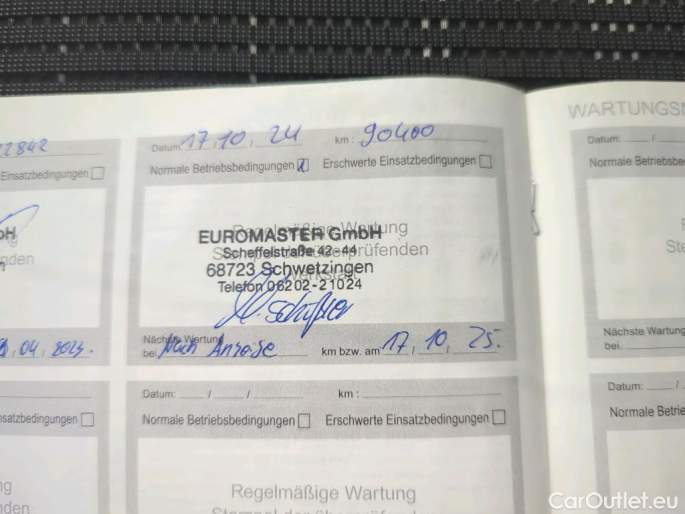 WARTUNGSN
22842
Einsatzbedingungen
Datum 17, 10, 24 km: 90400
Normale Betriebsbedingungen Erschwerte Einsatzbedingungen
Regelmäßige Wartung
EUROMASTER GmbH
Scheffelstraße 42-44
68723 Schwetzingen
Telefon 06202-21024
Nächste Wartung
bei Nach Anzeige km bzw. am 17, 10, 25.
04, 2023.
Datum: / / km:
Normale Betriebsbedingungen Erschwerte Einsatzbedingungen
Regelmäßige Wartung
nsatzbedingungen
ng
nden
Datum: /
Normale Betriebsbe
Nächste Wartung
bei
Datum: /
Normale Betrie
CarOutlet.eu